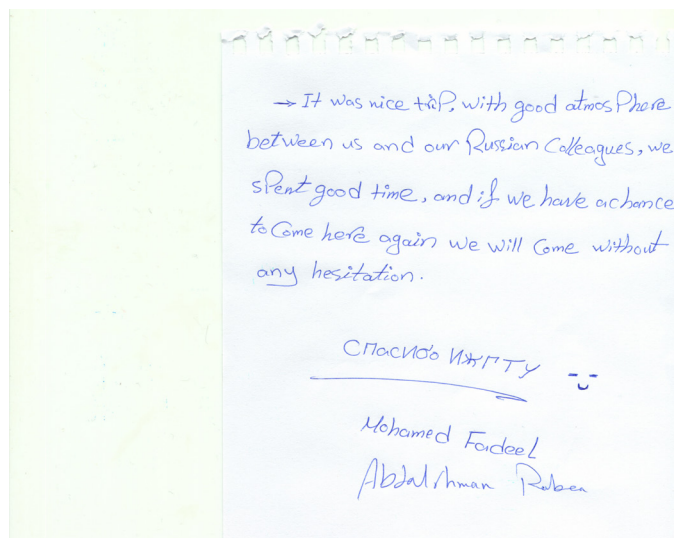 → It was nice trip, with good atmosphere
between us and our Russian Colleagues, we
spent good time, and if we have a chance
to come here again we will come without
any hesitation.
Спасибо ИЖГТУ
Mohamed Fadeel
Abdalrhman Rabea